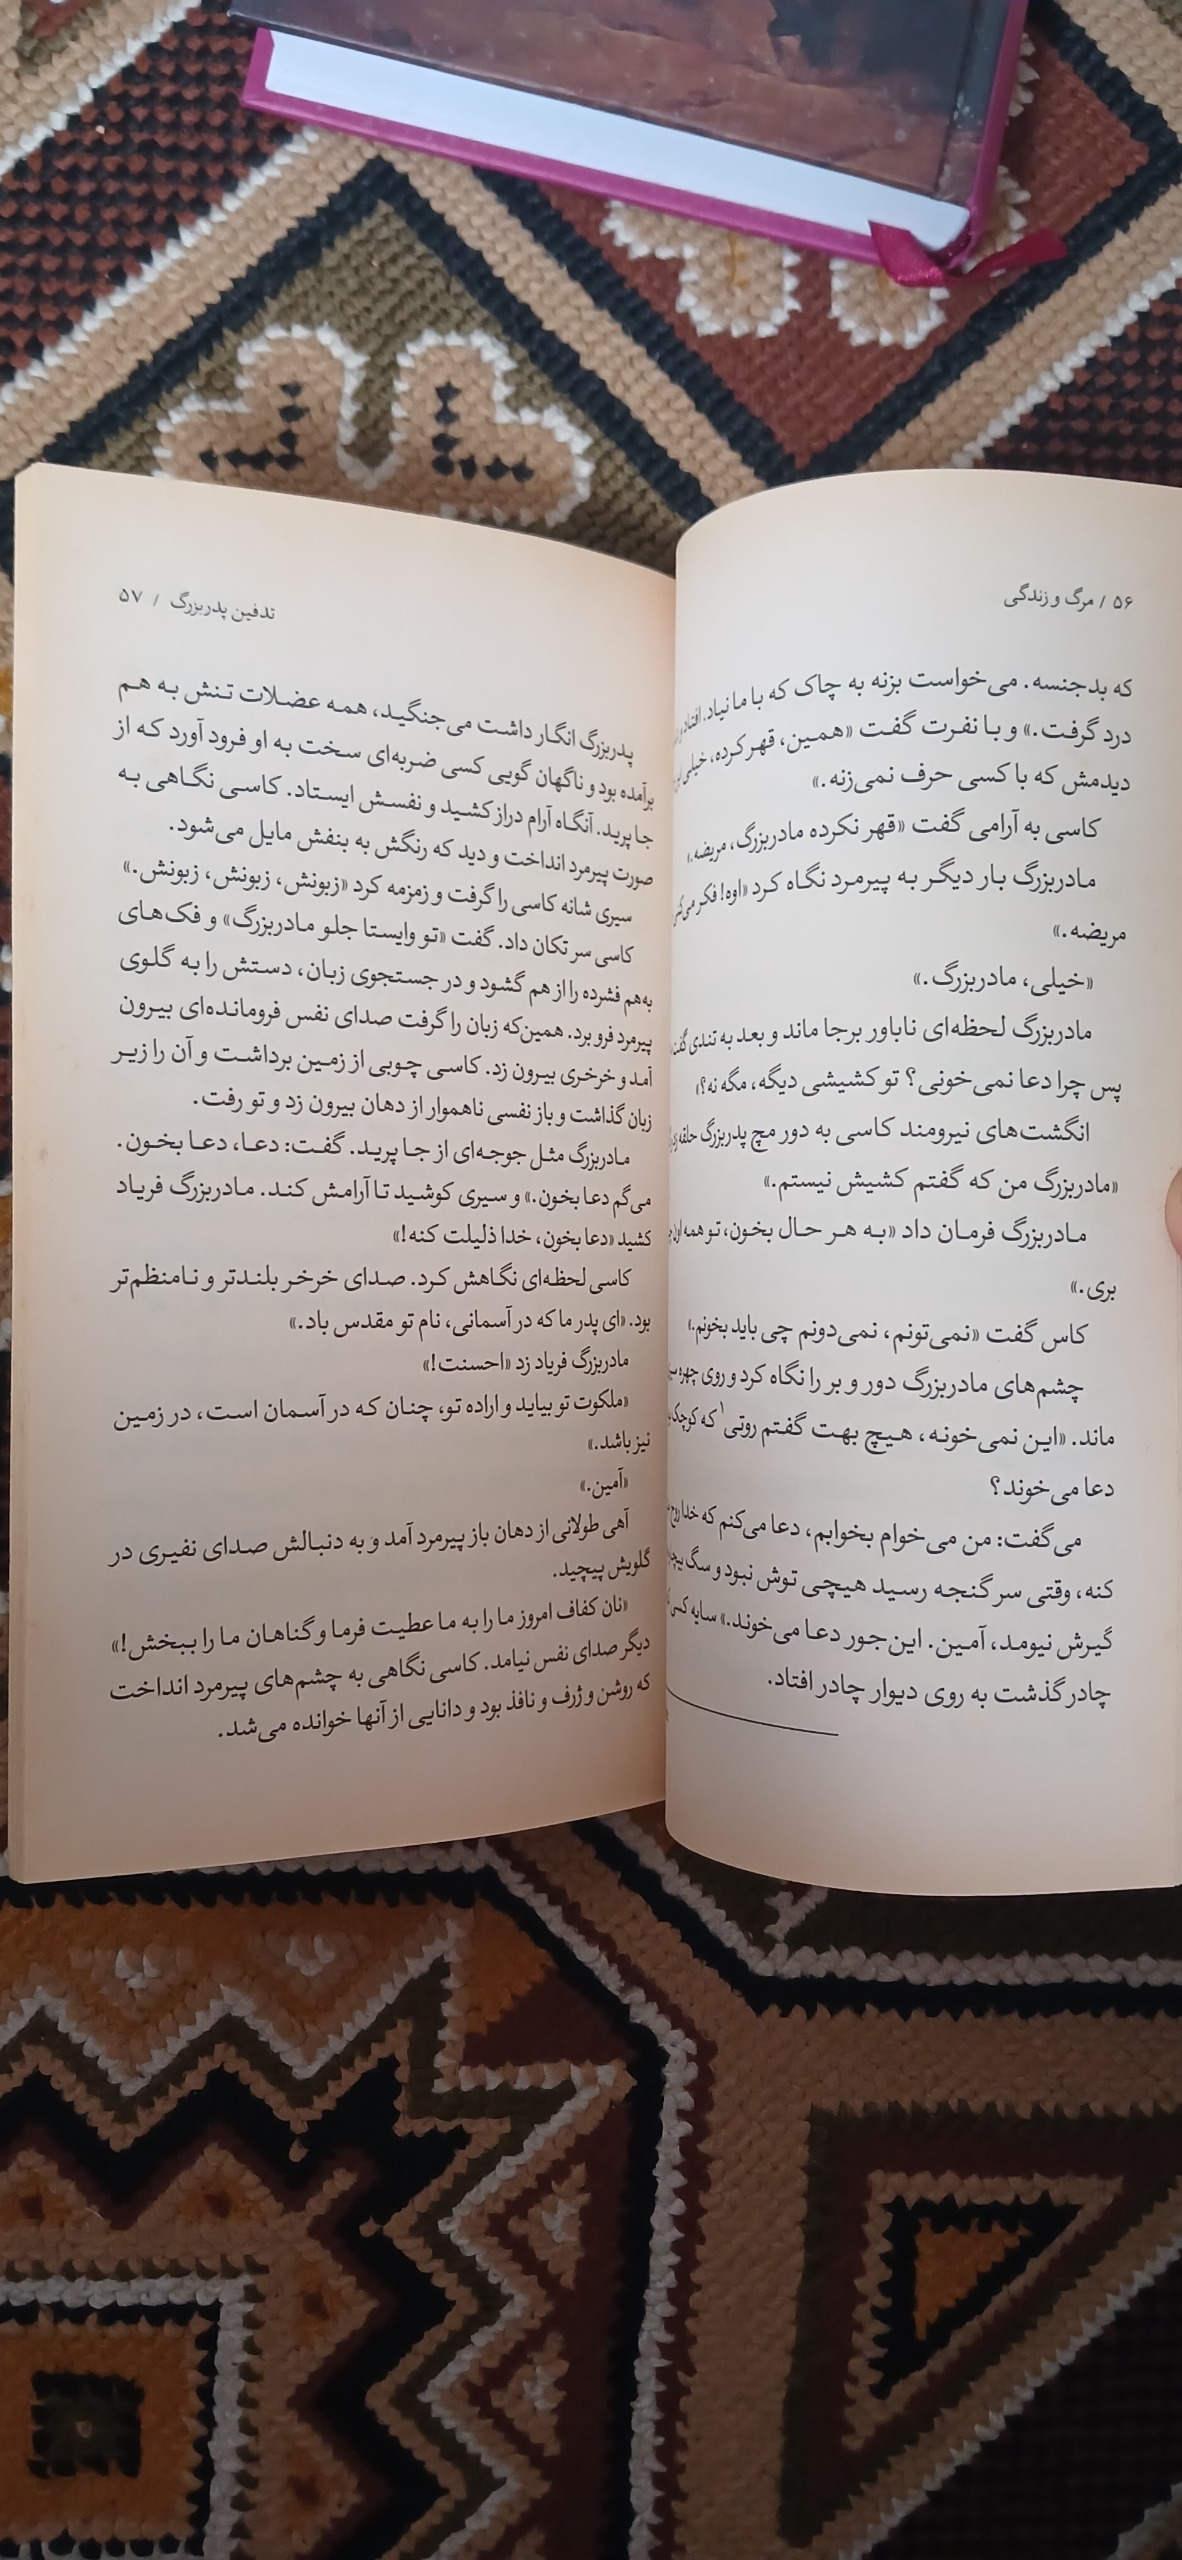 ۵۶ / مرگ و زندگی
که بدجنسه. می‌خواست بزنه به چاک که با ما نیاد. افتاد و
درد گرفت.» و با نفرت گفت «همین، قهر کرده، خیلی
دیدمش که با کسی حرف نمی‌زنه.»
کاسی به آرامی گفت «قهر نکرده مادربزرگ، مریضه.»
مادربزرگ بار دیگر به پیرمرد نگاه کرد «اوه! فکر می‌کنی
مریضه.»
«خیلی، مادربزرگ.»
مادربزرگ لحظه‌ای ناباور برجا ماند و بعد به تندی گفت
پس چرا دعا نمی‌خونی؟ تو کشیشی دیگه، مگه نه؟»
انگشت‌های نیرومند کاسی به دور مچ پدربزرگ حلقه
«مادربزرگ من که گفتم کشیش نیستم.»
مادربزرگ فرمان داد «به هر حال بخون، تو همه اون
بری.»
کاس گفت «نمی‌تونم، نمی‌دونم چی باید بخونم.»
چشم‌های مادربزرگ دور و بر را نگاه کرد و روی چهره
ماند. «این نمی‌خونه، هیچ بهت گفتم روتی۱ که کوچک
دعا می‌خوند؟
می‌گفت: من می‌خوام بخوابم، دعا می‌کنم که خدا روح
کنه، وقتی سر گنجه رسید هیچی توش نبود و سگ بیچاره
گیرش نیومد، آمین. این‌جور دعا می‌خوند.» سایه کسی
چادر گذشت به روی دیوار چادر افتاد.
تدفین پدربزرگ / ۵۷
پدربزرگ انگار داشت می‌جنگید، همه عضلات تنش به هم
برآمده بود و ناگهان گویی کسی ضربه‌ای سخت به او فرود آورد که از
جا پرید. آنگاه آرام دراز کشید و نفسش ایستاد. کاسی نگاهی به
صورت پیرمرد انداخت و دید که رنگش به بنفش مایل می‌شود.
سیری شانه کاسی را گرفت و زمزمه کرد «زبونش، زبونش، زبونش.»
کاسی سر تکان داد. گفت «تو وایستا جلو مادربزرگ» و فک‌های
به‌هم فشرده را از هم گشود و در جستجوی زبان، دستش را به گلوی
پیرمرد فرو برد. همین‌که زبان را گرفت صدای نفس فرومانده‌ای بیرون
آمد و خرخری بیرون زد. کاسی چوبی از زمین برداشت و آن را زیر
زبان گذاشت و باز نفسی ناهموار از دهان بیرون زد و تو رفت.
مادربزرگ مثل جوجه‌ای از جا پرید. گفت: دعا، دعا بخون.
می‌گم دعا بخون.» و سیری کوشید تا آرامش کند. مادربزرگ فریاد
کشید «دعا بخون، خدا ذلیلت کنه!»
کاسی لحظه‌ای نگاهش کرد. صدای خرخر بلندتر و نامنظم‌تر
بود. «ای پدر ما که در آسمانی، نام تو مقدس باد.»
مادربزرگ فریاد زد «احسنت!»
«ملکوت تو بیاید و اراده تو، چنان که در آسمان است، در زمین
نیز باشد.»
«آمین.»
آهی طولانی از دهان باز پیرمرد آمد و به دنبالش صدای نفیری در
گلویش پیچید.
«نان کفاف امروز ما را به ما عطیت فرما و گناهان ما را ببخش!»
دیگر صدای نفس نیامد. کاسی نگاهی به چشم‌های پیرمرد انداخت
که روشن و ژرف و نافذ بود و دانایی از آنها خوانده می‌شد.